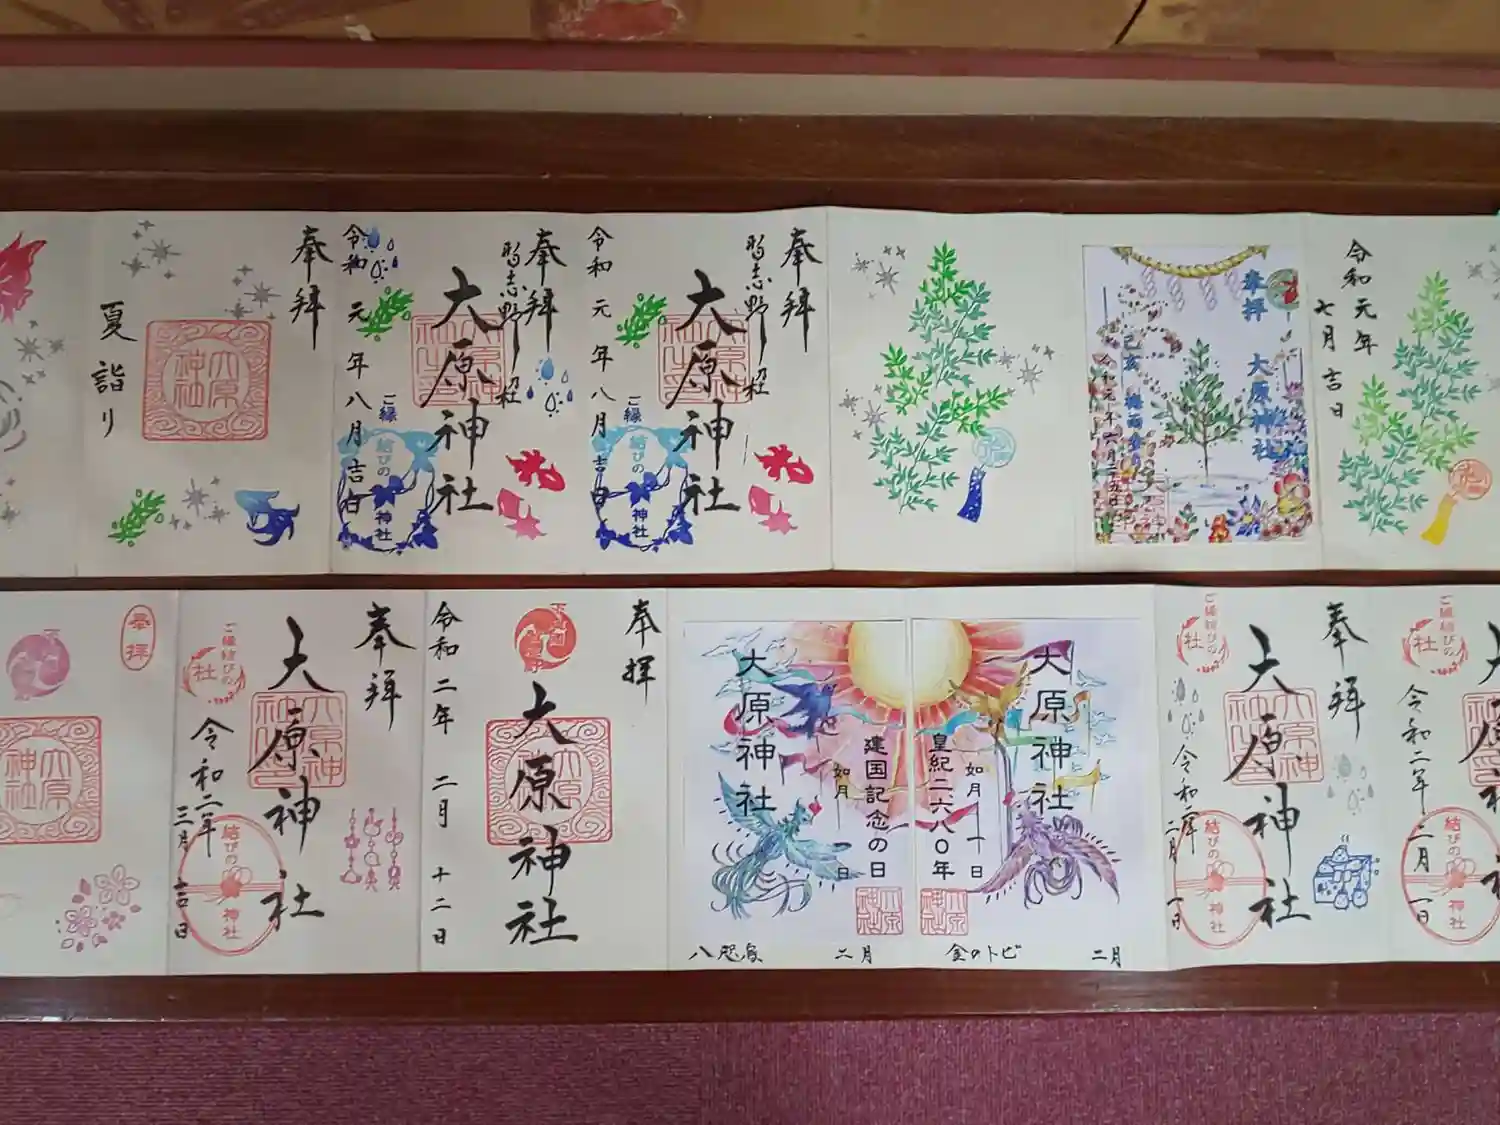 奉拝
夏詣り
大原神社
奉拝
習志野
大原神社
ご縁
結びの
神社
令和元年八月吉日
奉拝
習志野
大原神社
ご縁
結びの
神社
令和元年八月吉日
奉拝
大原神社
己亥
令和元年
七月吉日
奉拝
大原神社
奉拝
大原神社
ご縁結びの
社
令和二年
三月吉日
結びの
神社
奉拝
大原神社
令和二年 二月 十二日
大原神社
建国記念の日
如月十一日
八咫烏
二月
大原神社
如月十一日
皇紀二六八〇年
金のトビ
二月
奉拝
大原神社
ご縁結びの
社
令和二年
二月一日
結びの
神社
ご縁結びの
社
令和二年二月一日
結びの
神社